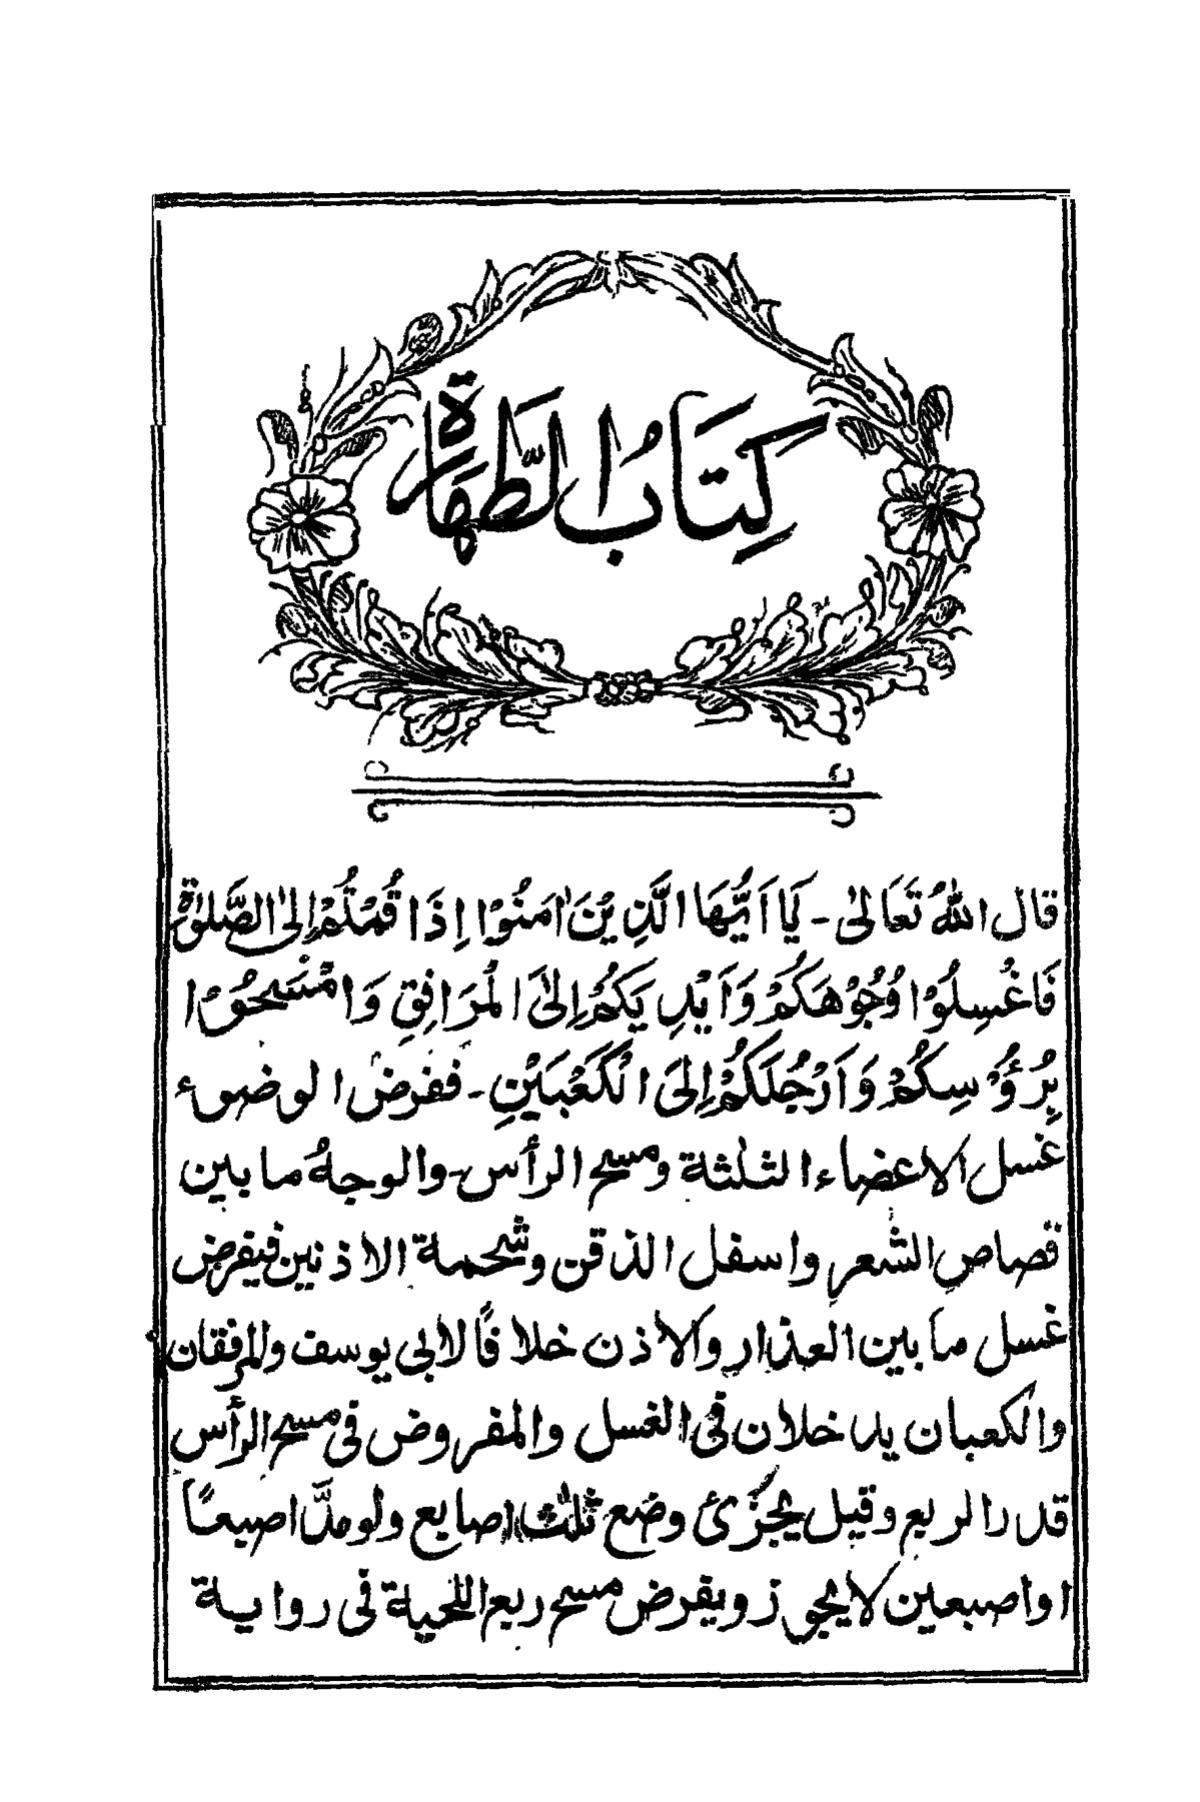 كِتَابُ الطَّهَارة
قال اللهُ تَعَالىٰ - يَا اَيُّهَا الَّذِيْنَ اٰمَنُوْا اِذَا قُمْتُمْ اِلىٰ الصَّلوٰةِ
فَاغْسِلُوْا وُجُوْهَكُمْ وَاَيْدِيَكُمْ اِلىٰ الْمَرَافِقِ وَامْسَحُوْا
بِرُؤُوْسِكُمْ وَاَرْجُلَكُمْ اِلىَ الْكَعْبَيْنِ - ففرض الوضوء
غسل الاعضاء الثلثة ومسح الرأس - والوجهُ ما بين
قصاص الشعر واسفل الذقن وشحمة الاذنين فيفرض
غسل ما بين العذار والاذن خلافًا لابى يوسف والمرفقان
والكعبان يدخلان فى الغسل والمفروض فى مسح الرأس
قدر الربع وقيل يجزئ وضع ثلث اصابع ولو مدَّ اصبعًا
او اصبعين لا يجوز ويفرض مسح ربع اللحية فى رواية